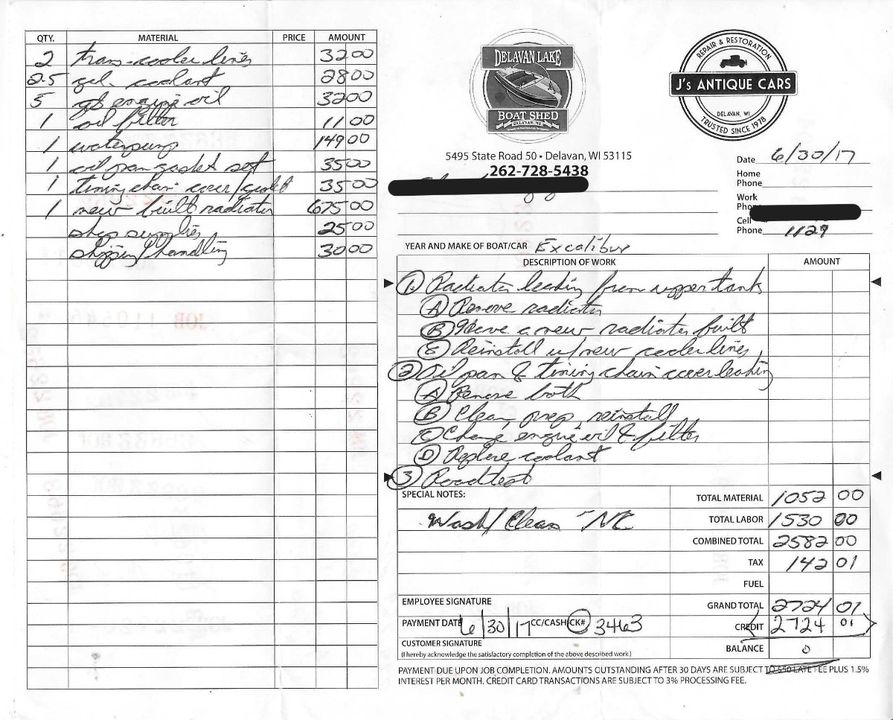 QTY. MATERIAL PRICE AMOUNT
2 trans-cooler lines 32 00
2.5 gal. coolant 28 00
5 qt engine oil 32 00
1 oil filter 11 00
1 waterpump 149 00
1 oil pan gasket set 35 00
1 timing chain cover/gasket 35 00
1 new built radiator 675 00
shop supplies 25 00
shipping/handling 30 00
DELAVAN LAKE
BOAT SHED
DELAVAN, WI
REPAIR & RESTORATION
J's ANTIQUE CARS
DELAVAN, WI
TRUSTED SINCE 1978
5495 State Road 50 • Delavan, WI 53115
262-728-5438
Date 6/30/17
Home
Phone
Work
Phone
Cell
Phone 1129
YEAR AND MAKE OF BOAT/CAR Excalibur
DESCRIPTION OF WORK AMOUNT
1. Radiator leaking from upper tank
A Remove radiator
B Have a new radiator built
C Reinstall w/new cooler lines
2 Oil pan & timing chain cover leaking
A Remove both
B Clean, prep, reinstall
C Change engine oil & filter
D Replace coolant
3 Roadtest
SPECIAL NOTES:
Wash/Clean - NC
TOTAL MATERIAL 1052 00
TOTAL LABOR 1530 00
COMBINED TOTAL 2582 00
TAX 142 01
FUEL
EMPLOYEE SIGNATURE
GRAND TOTAL 2724 01
PAYMENT DATE 6/30/17 CC/CASH CK# 3463
CREDIT 2724 01
CUSTOMER SIGNATURE
(I hereby acknowledge the satisfactory completion of the above described work.)
BALANCE 0
PAYMENT DUE UPON JOB COMPLETION. AMOUNTS OUTSTANDING AFTER 30 DAYS ARE SUBJECT TO $50 LATE FEE PLUS 1.5%
INTEREST PER MONTH. CREDIT CARD TRANSACTIONS ARE SUBJECT TO 3% PROCESSING FEE.